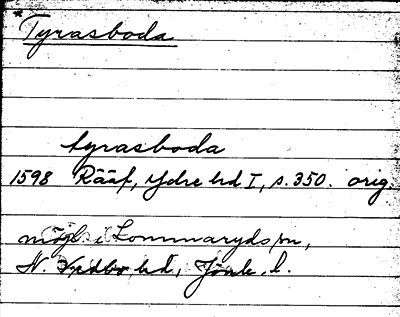 * Tyrasboda
tyrasboda
1598 Rääf, Ydre hd I, s. 350. orig.
möjl. i Lommaryds sn,
N. Vedbo hd, Jönk. l.